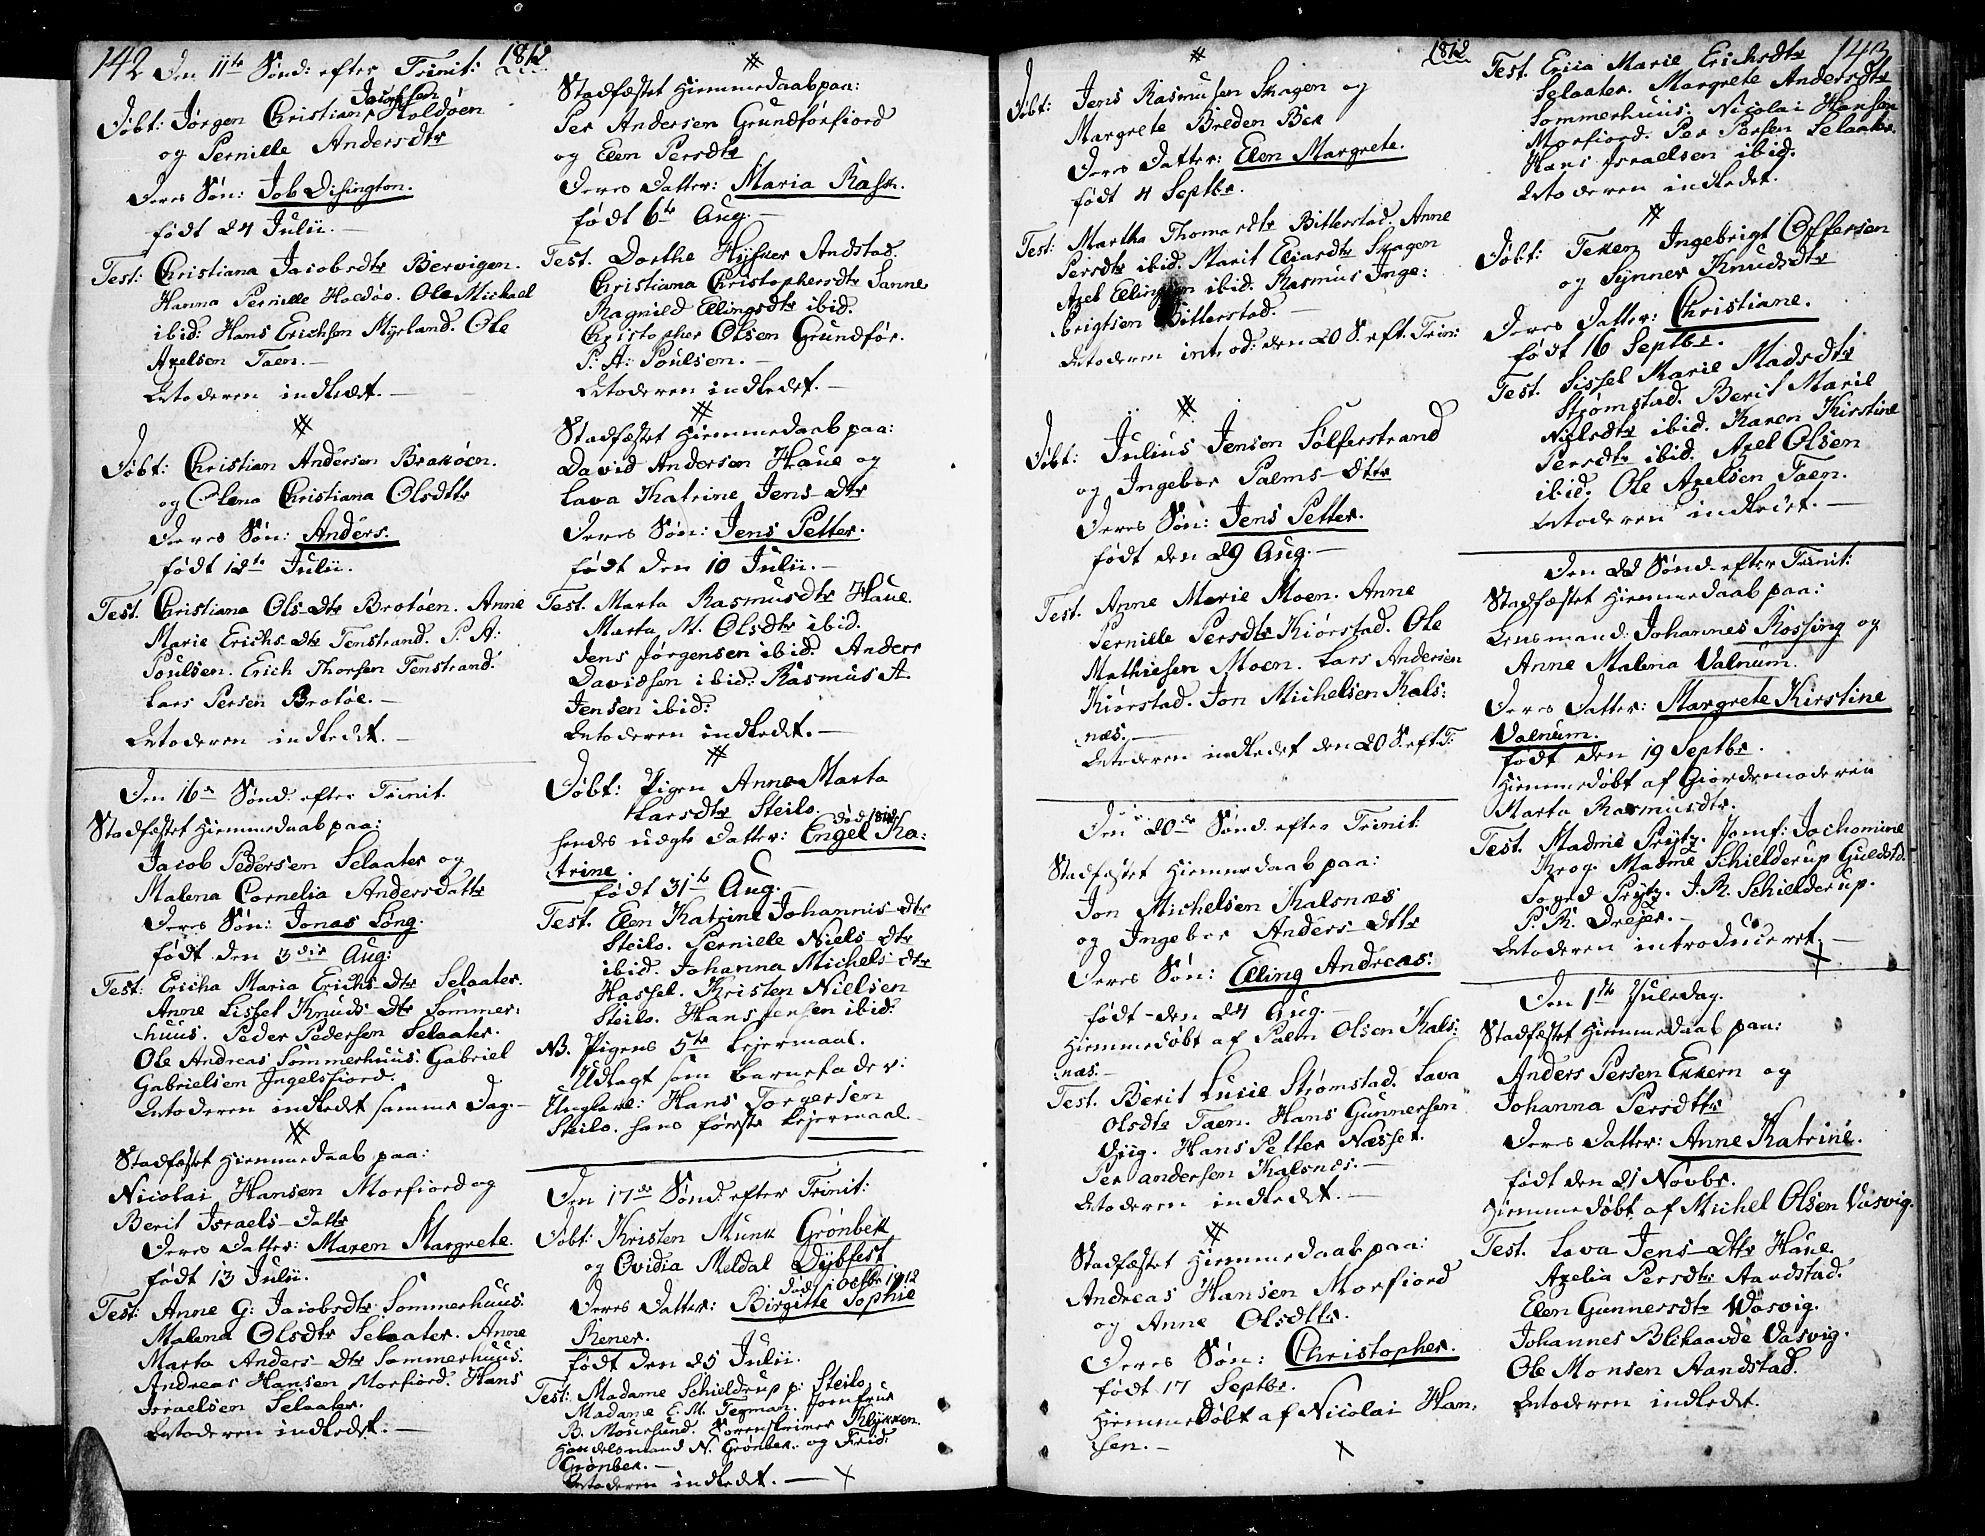 142 Den 11te Sønd: efter Trinit: 1812
Jacobsen
Døbt: Jørgen Christian Holdøen
og Pernille Andersdtr
Deres Søn: Job Disington.
født 24 Julii. —
Test: Christiana Jacobsdtr Bervigen.
Hanna Pernille Holdøe. Ole Michael
ibid: Hans Erichsen Myrland. Ole
Axelsen Taen. —
Modæren indledet. —
Døbt: Christian Andersen Brakøen.
og Olena Christiana Olsdttr
Deres Søn: Anders.
født 12te Julii.
Test. Christiana Ols-Dtr Brotøen. Anne
Marie Erichs-Dtr Fenstrand. P. A:
Poulsen. Erich Thorsen Fenstrand.
Lars Persen Brotøe. —
Moderen indledet. —
Den 16de Sønd. efter Trinit.
Stadfæstet Hiemmedaab paa:
Jacob Pedersen Selaater og
Malena Cornelia Andersdattr
Deres Søn: Jonas Long.
født den 3die Aug:
Test: Ericha Maria Erichs-Dtr Selaater.
Anne Lisset Knuds-Dtr Sommer:
huus. Peder Pedersen Selaater.
Ole Andreas Sommerhuus: Gabriel
Gabrielsen Ingelsfiord.
Moderen indledet samme Dag. —
Stadfæstet Hiemmedaab paa:
Nicolai Hansen Morfiord og
Berit Israels-Dattr
Deres Datter: Maren Margrete.
født 13 Julii.
Test: Anne G: Jacobsdtr Sommerhuus.
Malena Olsdtr Selaater. Anne
Marta Anders-Dtr Sommerhuus.
Andreas Hansen Morfiord. Hans
Israelsen Selaater.
Moderen indledet. —
Stadfæstet Hiemmedaab paa:
Per Andersen Grundførfiord
og Elen Persdtr
Deres Datter: Maria Rask.
født 6te Aug. —
Test. Dorthe Andstad.
Christiana Christophersdtr Sanne
Ragnild Ellingsdtr ibid.
Christopher Olsen Grundfør.
P: A: Poulsen. —
Moderen indledet. —
Stadfæstet Hiemmedaab paa:
David Andersen Haue og
Lava Katrine Jens-Dtr
Deres Søn: Jens Petter.
født den 10 Julii. —
Test. Marta Rasmusdtr Haue.
Marta M. Olsdtr ibid.
Jens Jørgensen ibid. Anders
Davidsen ibid: Rasmus A.
Jensen ibid:
Moderen indledet. —
Døbt: Pigen Anne Marta
Larsdtr Steilo.
død 1812
hendes uægte Datter: Engel Ka:
trine.
født 31te Aug. —
Test. Elen Katrine Johannis-Dtr
Steilo. Pernille Niels-Dtr
ibid. Johanna Michels-Dtr
Hassel. Kristen Nielsen
Steilo. Hans Jensen ibid:
NB. Pigens 5te Lejermaal.
Udlagt som Barnefader:
Ungkarl: Hans Torgersen
Steilo. hans første Lejermaal
Den 17de Sønd. efter Trinit:
Døbt: Kristen Munk Grønbek
og Ovidia Meldal Dybfest
død i Octbr 1812
Deres Datter: Birgitte Sophie
Rener.
født den 25 Julii.
Test: Madame Schieldrup p: Steilo
Madame E. M. Tegman. Jomfrue
B. Moursund. Sorenskriver Klykken.
Handelsmand N. Grønbek. og Frid:
Grønbek. —
Moderen indledet. —
1812
Døbt: Jens Rasmusen Skagen og
Margrete Breden Bek
Deres Datter: Elen Margrete.
født 4 Septbr.
Test: Martha Thomasdtr Bitterstad. Anne
Persdtr ibid. Marit Eliasdtr Skagen
Axel Ellingsen ibid. Rasmus Inge:
brigtsen Bitterstad. —
Moderen introd: den 20 S. eft. Trin:
Døbt: Julius Jensen Sølferstrand
og Ingebor Palms-Dttr
Deres Søn: Jens Petter.
født den 29 Aug. —
Test. Anne Marie Moen. Anne
Pernille Persdtr Kiørstad. Ole
Mathiesen Moen. Lars Andersen
Kiørstad. Jon Michelsen Kals:
næs. —
Moderen indledet den 20 S. eft T:
Den 20de Sønd. efter Trinit:
Stadfæstet Hiemmedaab paa:
Jon Michelsen Kalsnæs
og Ingebor Anders-Dttr
Deres Søn: Elling Andreas.
født den 24 Aug. —
Hiemmedøbt af Palm Olsen Kals:
næs. —
Test. Berit Lucie Strømstad. Lava
Olsdtr Taen. Hans Gunnersen
Vjig. Hans Petter Næsset.
Per Andersen Kalsnæs. —
Moderen indledet. —
Stadfæstet Hiemmedaab paa:
Andreas Hansen Morfiord
og Anne Olsdttr.
Deres Søn: Christopher.
født 17 Septbr.
Hiemmedøbt af Nicolai Han,
sen. —
143
Test. Ericia Marie Erichsdtr
Selaater. Margrete Andersdtr
Sommerhuus. Nicolai Hansen
Morfiord. Per Persen Selaater.
Hans Israelsen ibid.
Moderen indledet.
Døbt: Teken Ingebrigt Offersen
og Synner Knudsdtr
Deres Datter: Christiane.
født 16 Septbr.
Test. Sissel Marie Madsdtr
Strømstad. Berit Marie
Nielsdtr ibid. Karen Kirstine
Persdtr ibid. Axel Olsen
ibid. Ole Axelsen Taen.
Moderen indledet. —
Den 22 Sønd. efter Trinit:
Stadfæstet Hiemmedaab paa:
Lensmand: Johannes Rossing og
Anne Malena Valnum.
Deres Datter: Margrete Kirstine
Valnum.
født den 19 Septbr.
Hiemmedøbt af Giordemoderen
Marta Rasmusdtr.
Test. Madme Prytz. Jomf: Jochomine
Krog. Madme Schielderup Guldstd.
Foged Prytz. J. R. Schielderup.
P. R. Dreyer. —
Moderen introduceret. —
Den 1ste Juledag.
Stadfæstet Hiemmedaab paa:
Anders Persen Ekkern og
Johanna Persdttr
Deres Datter: Anne Katrine.
født den 21 Novbr.
Hiemmedøbt af Michel Olsen Vasvig.
Test. Lava Jens-Dttr Haue.
Axelia Persdtr Aandstad.
Elen Gunnersdtr Wasvig.
Johannes Blikaavde Vasvig.
Ole Monsen Aandstad.
Moderen indledet.